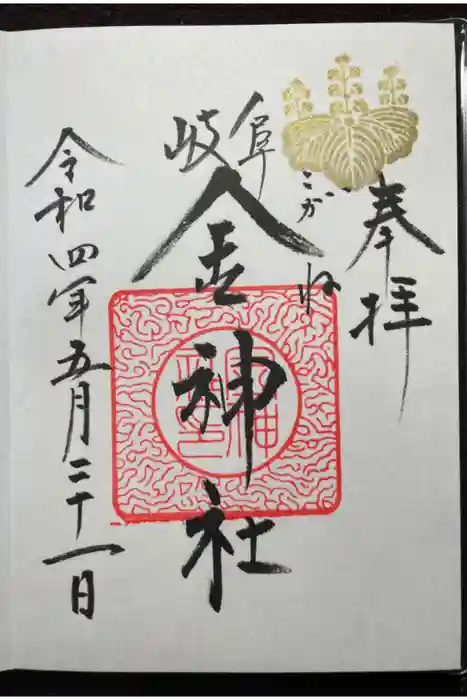 奉拝
こがね
岐阜
金神社
令和四年五月二十一日